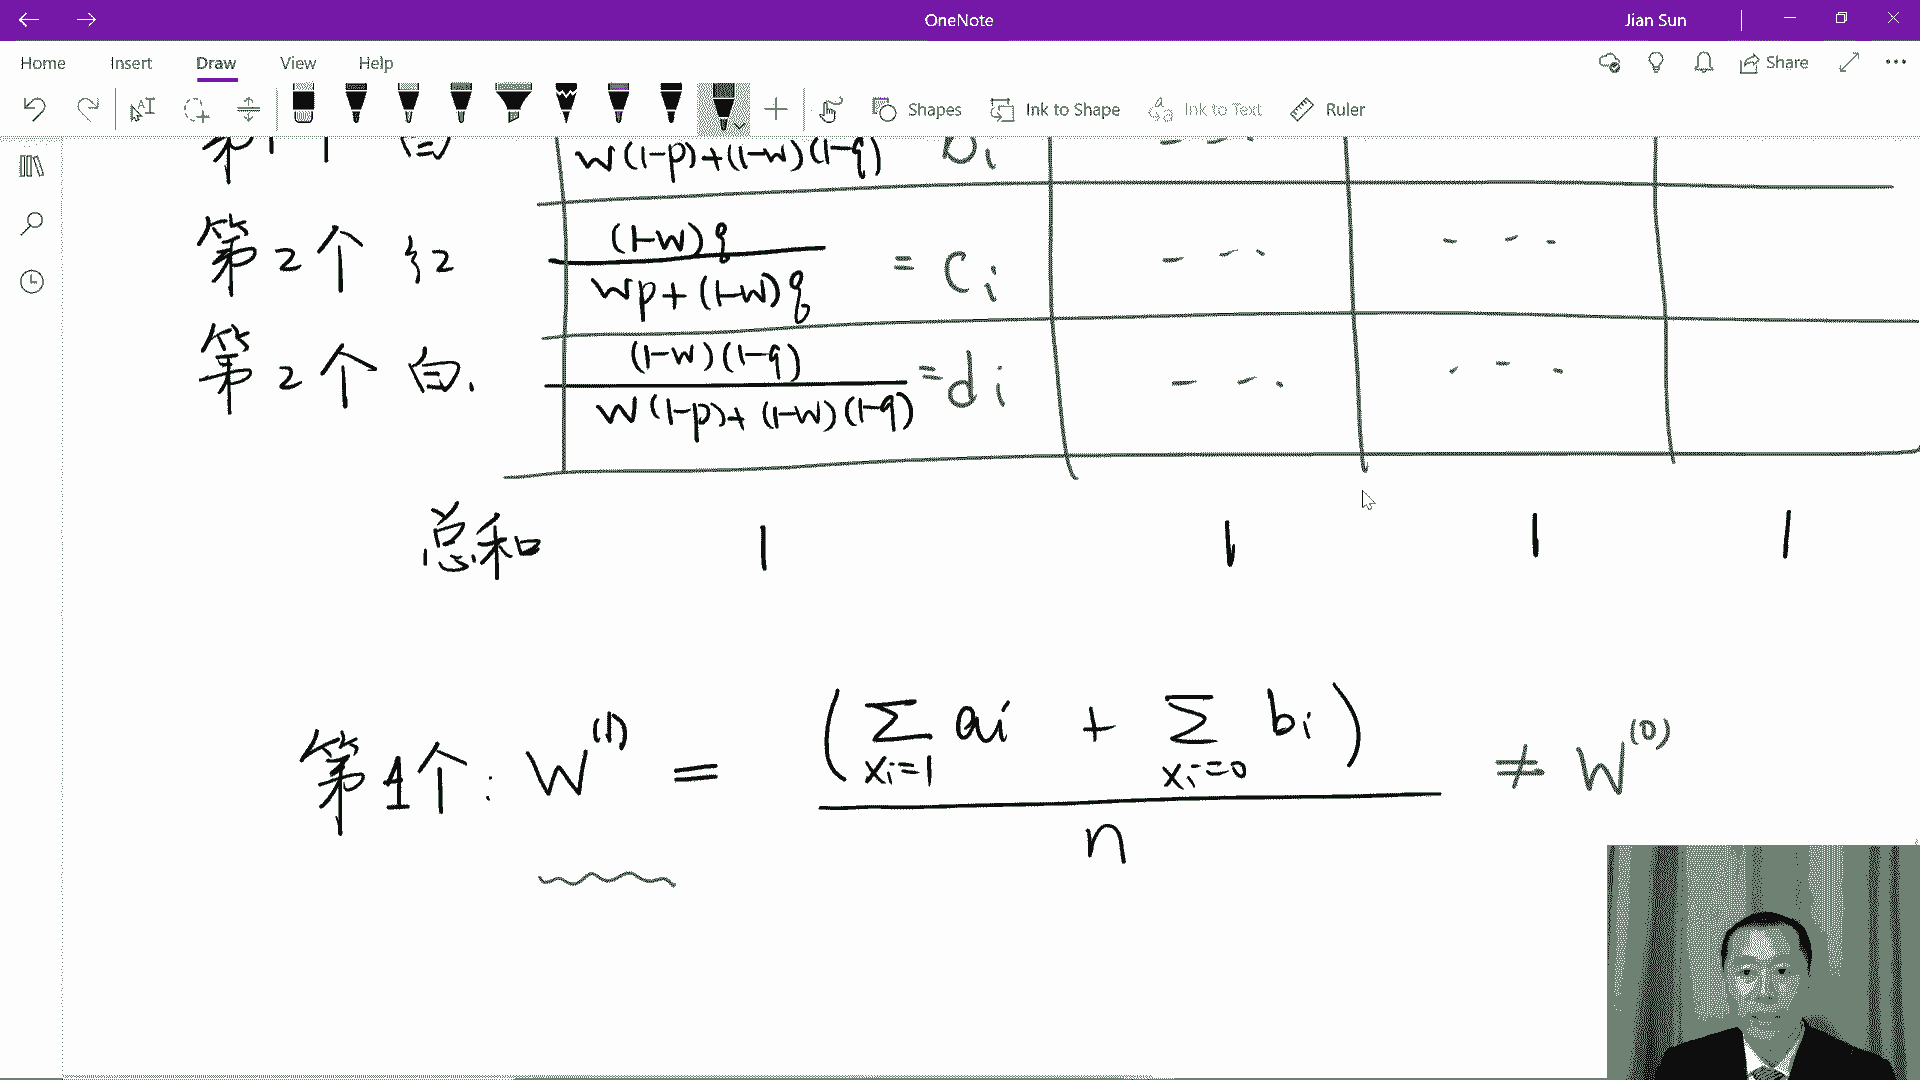 OneNote
Jian Sun
Home Insert Draw View Help
Share
Shapes Ink to Shape Ink to Text Ruler
第1个 白 W(1-p)+(1-w)(1-q) bi - - -
第2个 红 (1-w)q / Wp+(1-w)q = Ci - - - - - -
第2个 白. (1-w)(1-q) / W(1-p)+(1-w)(1-q) = di - - - - - -
总和 1 1 1 1
第1个: W^(1) = (∑_{xi=1} ai + ∑_{xi=0} bi) / n ≠ W^(0)